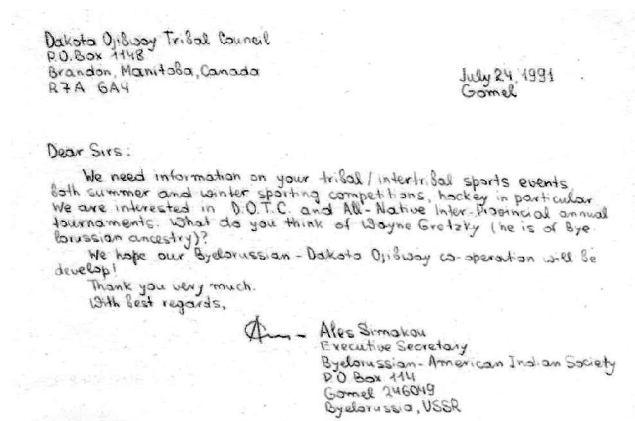 Dakota Ojibway Tribal Council
P.O. Box 1148
Brandon, Manitoba, Canada
R7A 6A4
July 24, 1991
Gomel
Dear Sirs:
We need information on your tribal/intertribal sports events,
both summer and winter sporting competitions, hockey in particular.
We are interested in D.O.T.C. and All-Native Inter-Provincial annual
tournaments. What do you think of Wayne Gretzky (he is of Bye-
lorussian ancestry)?
We hope our Byelorussian-Dakota Ojibway co-operation will be
develop!
Thank you very much.
With best regards,
Ales Simakou
Executive Secretary
Byelorussian-American Indian Society
P.O. Box 114
Gomel 246049
Byelorussia, USSR